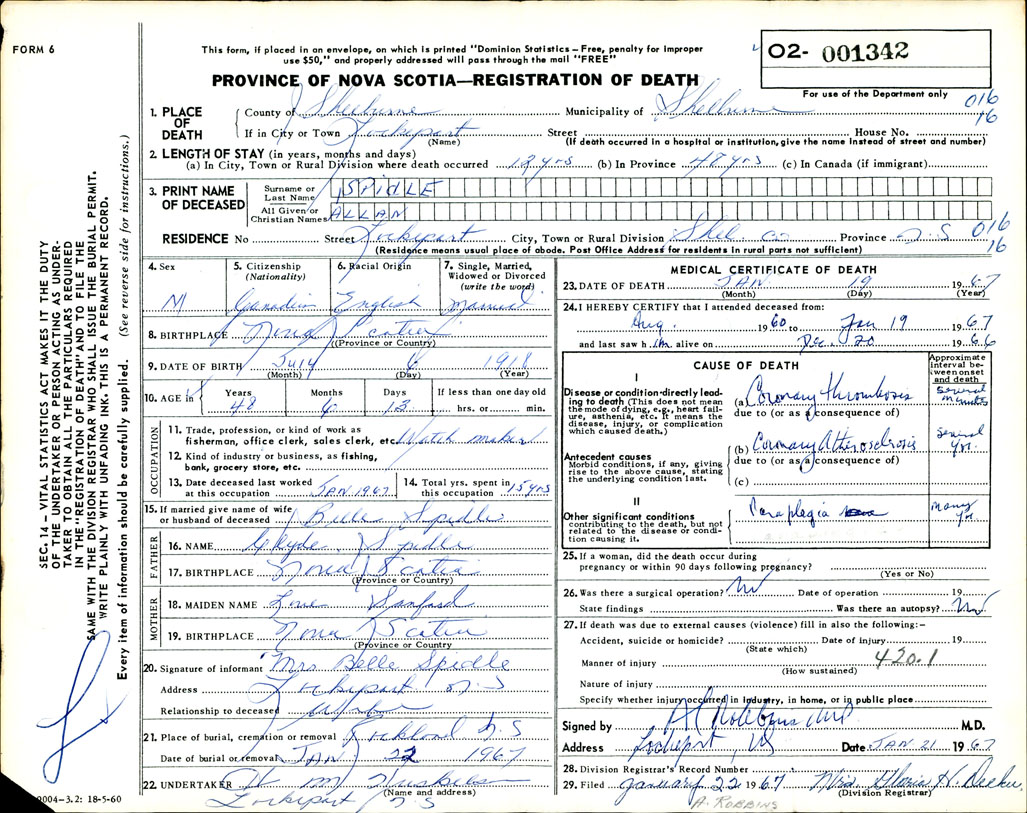 FORM 6
This form, if placed in an envelope, on which is printed "Dominion Statistics – Free, penalty for improper
use $50," and properly addressed will pass through the mail "FREE"
O2- 001342
For use of the Department only
PROVINCE OF NOVA SCOTIA—REGISTRATION OF DEATH
016
16
1. PLACE OF DEATH
County of Shelburne Municipality of Shelburne
If in City or Town Lockeport Street House No.
(Name) (If death occurred in a hospital or institution, give the name instead of street and number)
2. LENGTH OF STAY (in years, months and days)
(a) In City, Town or Rural Division where death occurred 12 yrs (b) In Province 48 yrs (c) In Canada (if immigrant)
3. PRINT NAME OF DECEASED
Surname or Last Name SPIDLE
All Given or Christian Names ALLAN
RESIDENCE No Street Lockeport City, Town or Rural Division Shel. Co Province N.S
016
16
(Residence means usual place of abode. Post Office Address for residents in rural parts not sufficient)
4. Sex M
5. Citizenship (Nationality) Canadian
6. Racial Origin English
7. Single, Married, Widowed or Divorced (write the word) Married
8. BIRTHPLACE Nova Scotia
(Province or Country)
9. DATE OF BIRTH July 6 1918
(Month) (Day) (Year)
10. AGE in Years 48 Months 6 Days 13 If less than one day old hrs. or min.
OCCUPATION
11. Trade, profession, or kind of work as
fisherman, office clerk, sales clerk, etc. Watch maker
12. Kind of industry or business, as fishing,
bank, grocery store, etc.
13. Date deceased last worked at this occupation JAN 1967
14. Total yrs. spent in this occupation 15 yrs
15. If married give name of wife
or husband of deceased Belle Spidle
FATHER
16. NAME Clyde Spidle
17. BIRTHPLACE Nova Scotia
(Province or Country)
MOTHER
18. MAIDEN NAME Sanford
19. BIRTHPLACE Nova Scotia
(Province or Country)
20. Signature of informant Mrs Belle Spidle
Address Lockeport N.S
Relationship to deceased
21. Place of burial, cremation or removal N.S
Date of burial or removal JAN 22 1967
22. UNDERTAKER H M Huskins
(Name and address)
Lockeport N.S
0004–3.2: 18-5-60
MEDICAL CERTIFICATE OF DEATH
23. DATE OF DEATH JAN 19 1967
(Month) (Day) (Year)
24. I HEREBY CERTIFY that I attended deceased from:
Aug. 1960 to Jan 19 1967
and last saw him alive on Dec. 20 1966
CAUSE OF DEATH
Approximate interval between onset and death
I
Disease or condition directly leading to death (This does not mean the mode of dying, e.g., heart failure, asthenia, etc. It means the disease, injury, or complication which caused death.)
(a) Coronary thrombosis several minutes
due to (or as a consequence of)
Antecedent causes
Morbid conditions, if any, giving rise to the above cause, stating the underlying condition last.
(b) Coronary Atherosclerosis several yr.
due to (or as a consequence of)
(c)
II
Other significant conditions
contributing to the death, but not related to the disease or condition causing it.
Paraplegia many yr
25. If a woman, did the death occur during
pregnancy or within 90 days following pregnancy?
(Yes or No)
26. Was there a surgical operation? No Date of operation 19
State findings Was there an autopsy? No
27. If death was due to external causes (violence) fill in also the following:–
Accident, suicide or homicide? Date of injury 19
(State which)
420.1
Manner of injury
(How sustained)
Nature of injury
Specify whether injury occurred in industry, in home, or in public place
Signed by M.D.
Address Lockeport, NS Date JAN 21 1967
28. Division Registrar's Record Number
29. Filed January 22 1967 Mrs.
(Division Registrar)
A. ROBBINS
SEC. 14 – VITAL STATISTICS ACT MAKES IT THE DUTY
OF THE UNDERTAKER OR PERSON ACTING AS UNDER-
TAKER TO OBTAIN ALL THE PARTICULARS REQUIRED
IN THE "REGISTRATION OF DEATH" AND TO FILE THE
SAME WITH THE DIVISION REGISTRAR WHO SHALL ISSUE THE BURIAL PERMIT.
WRITE PLAINLY WITH UNFADING INK. THIS IS A PERMANENT RECORD.
Every item of information should be carefully supplied. (See reverse side for instructions.)